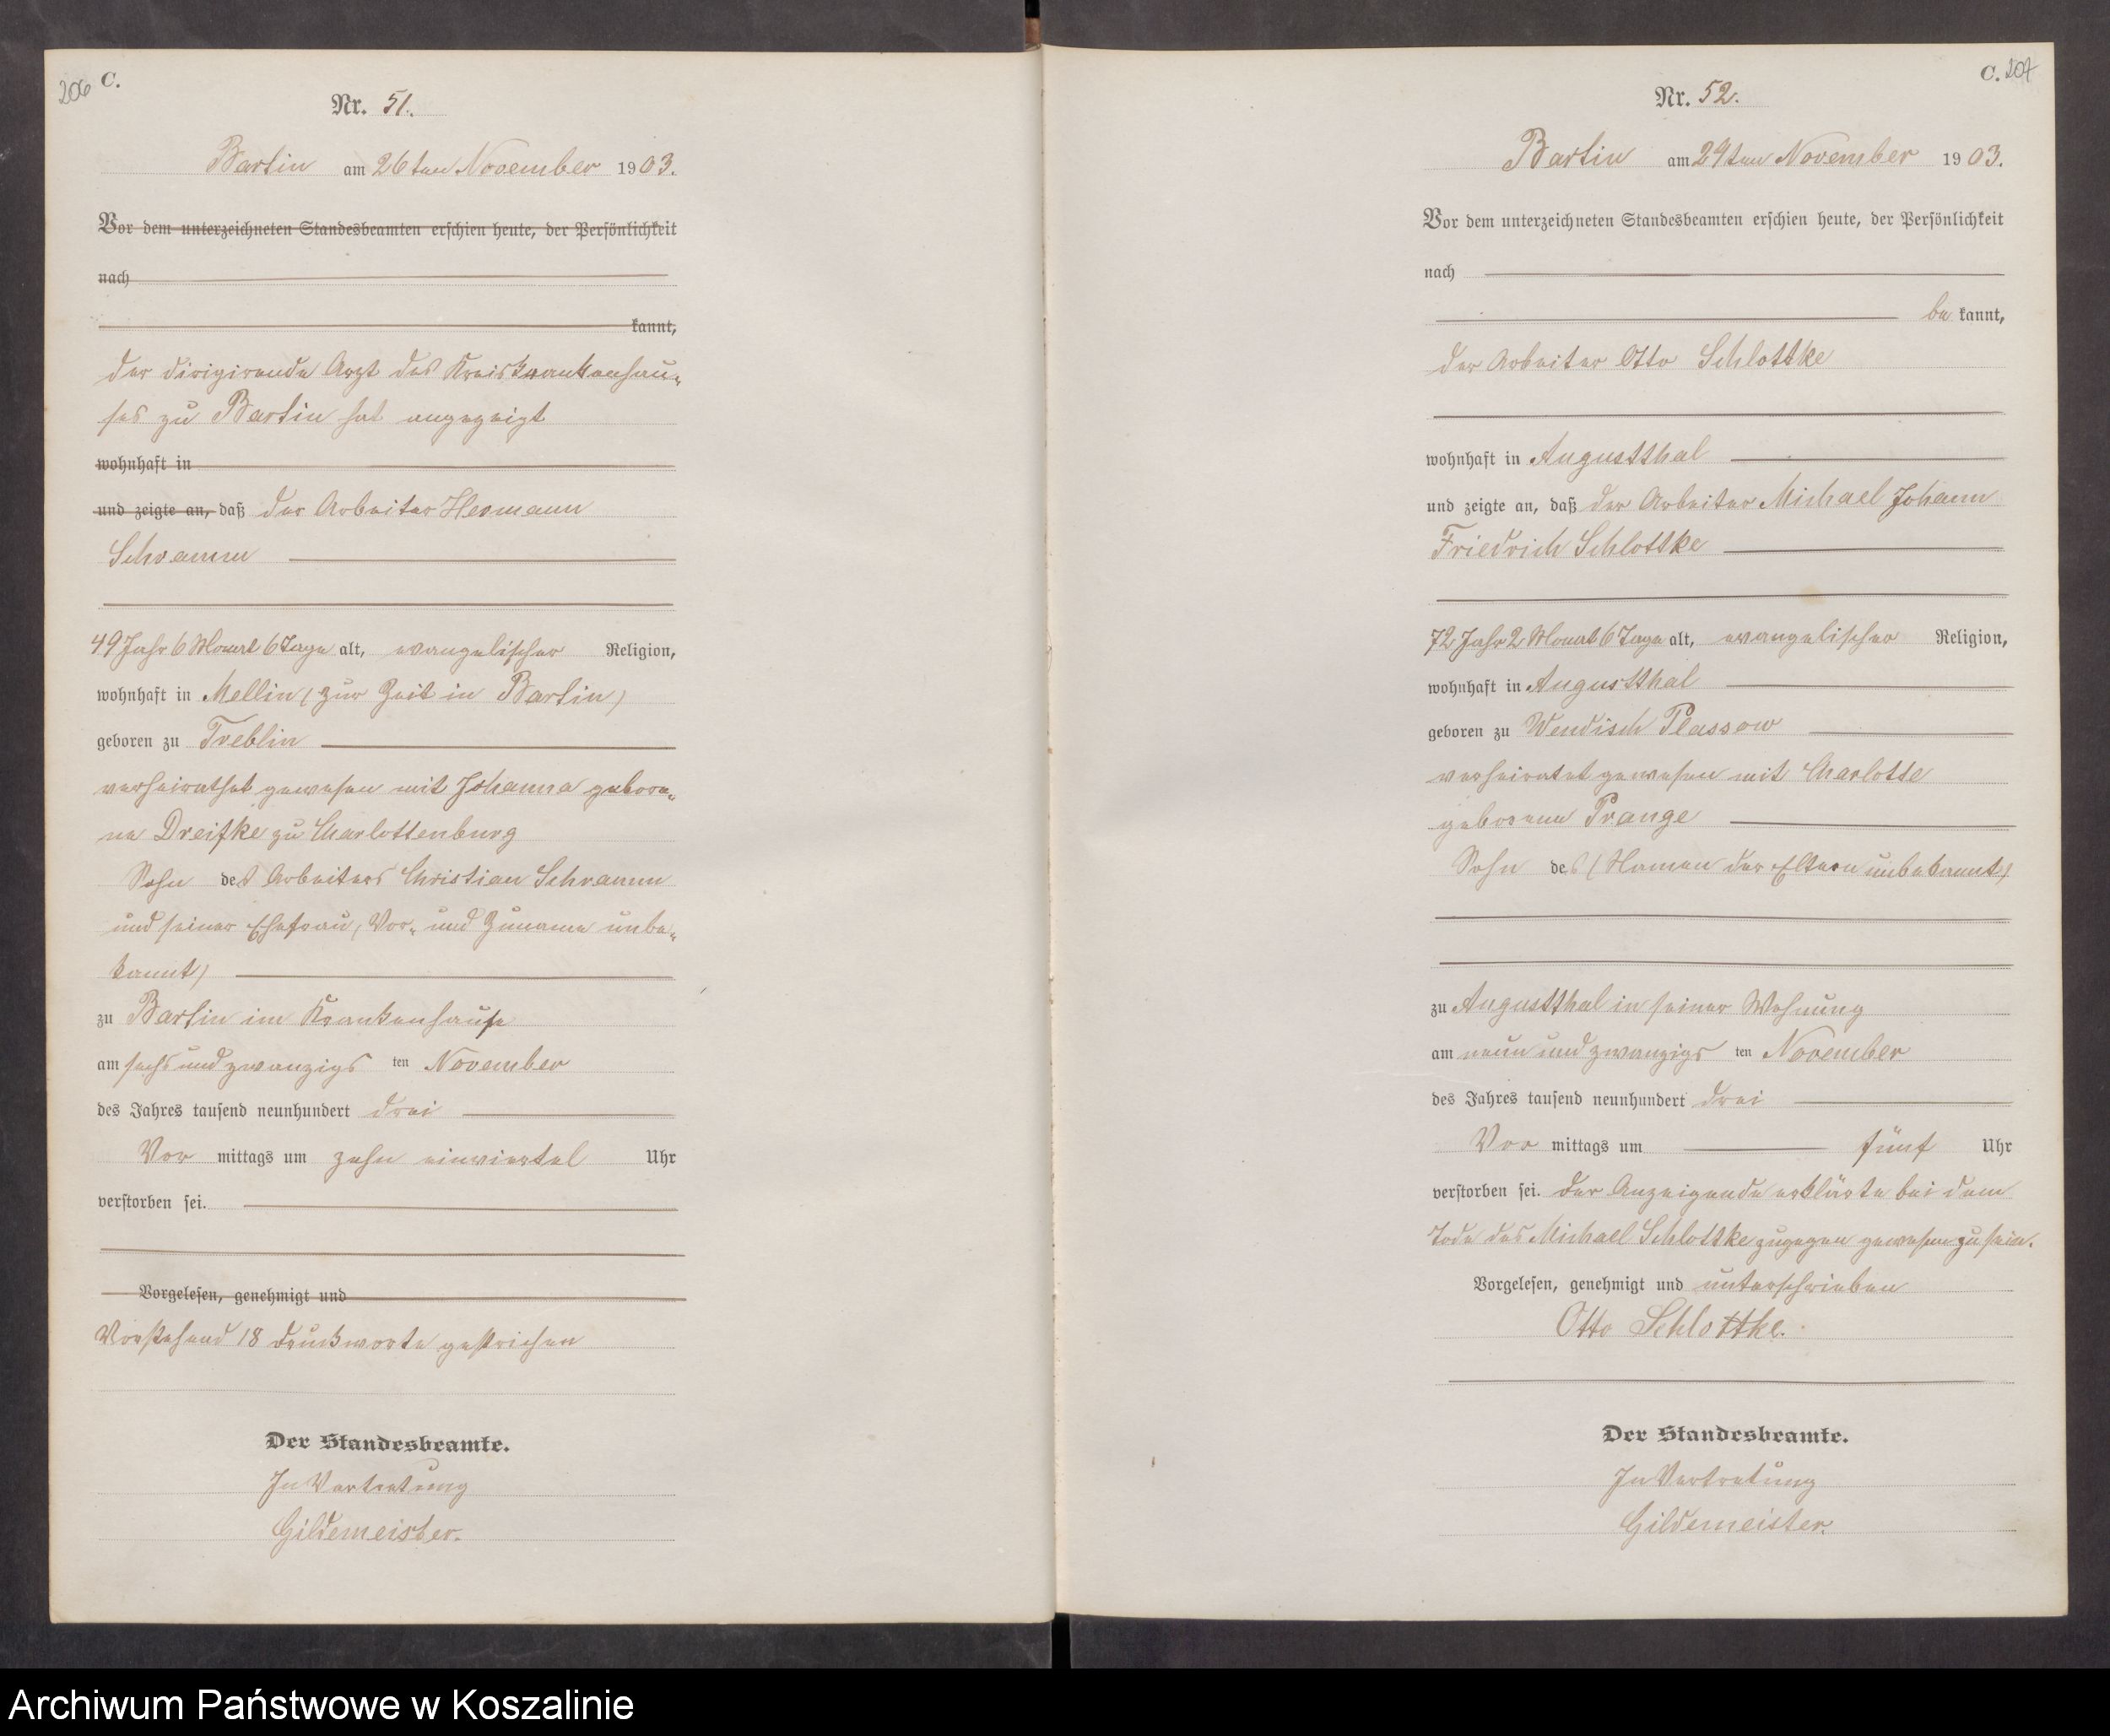 206 C.
Nr. 51.
Bartin am 26ten November 1903.
Vor dem unterzeichneten Standesbeamten erschien heute, der Persönlichkeit
nach
kannt,
der dirigirende Arzt des Kreiskrankenhau-
ses zu Bartin hat angezeigt
wohnhaft in
und zeigte an, daß der Arbeiter Hermann
Schramm
49 Jahr 6 Monat 6 Tage alt, evangelischer Religion,
wohnhaft in Mellin (zur Zeit in Bartin)
geboren zu Treblin
verheirathet gewesen mit Johanna gebore-
ne Dreifke zu Charlottenburg
Sohn des Arbeiters Christian Schramm
und seiner Ehefrau, Vor- und Zuname unbe-
kannt)
zu Bartin im Krankenhause
am sechsundzwanzigs ten November
des Jahres tausend neunhundert drei
Vor mittags um zehn einviertel Uhr
verstorben sei.
Vorgelesen, genehmigt und
Vorstehend 18 Druckworte gestrichen
Der Standesbeamte.
In Vertretung
Gildemeister.
C. 207
Nr. 52.
Bartin am 29ten November 1903.
Vor dem unterzeichneten Standesbeamten erschien heute, der Persönlichkeit
nach
be kannt,
der Arbeiter Otto Schlottke
wohnhaft in Augustthal
und zeigte an, daß der Arbeiter Michael Johann
Friedrich Schlottke
72 Jahr 2 Monat 6 Tage alt, evangelischer Religion,
wohnhaft in Augustthal
geboren zu Wendisch Plassow
verheiratet gewesen mit Charlotte
geborene Prange
Sohn des (Namen der Eltern unbekannt)
zu Augustthal in seiner Wohnung
am neunundzwanzigs ten November
des Jahres tausend neunhundert drei
Vor mittags um fünf Uhr
verstorben sei. Der Anzeigende erklärte bei dem
Tode des Michael Schlottke zugegen gewesen zu sein.
Vorgelesen, genehmigt und unterschrieben
Otto Schlottke.
Der Standesbeamte.
In Vertretung
Gildemeister.
Archiwum Państwowe w Koszalinie